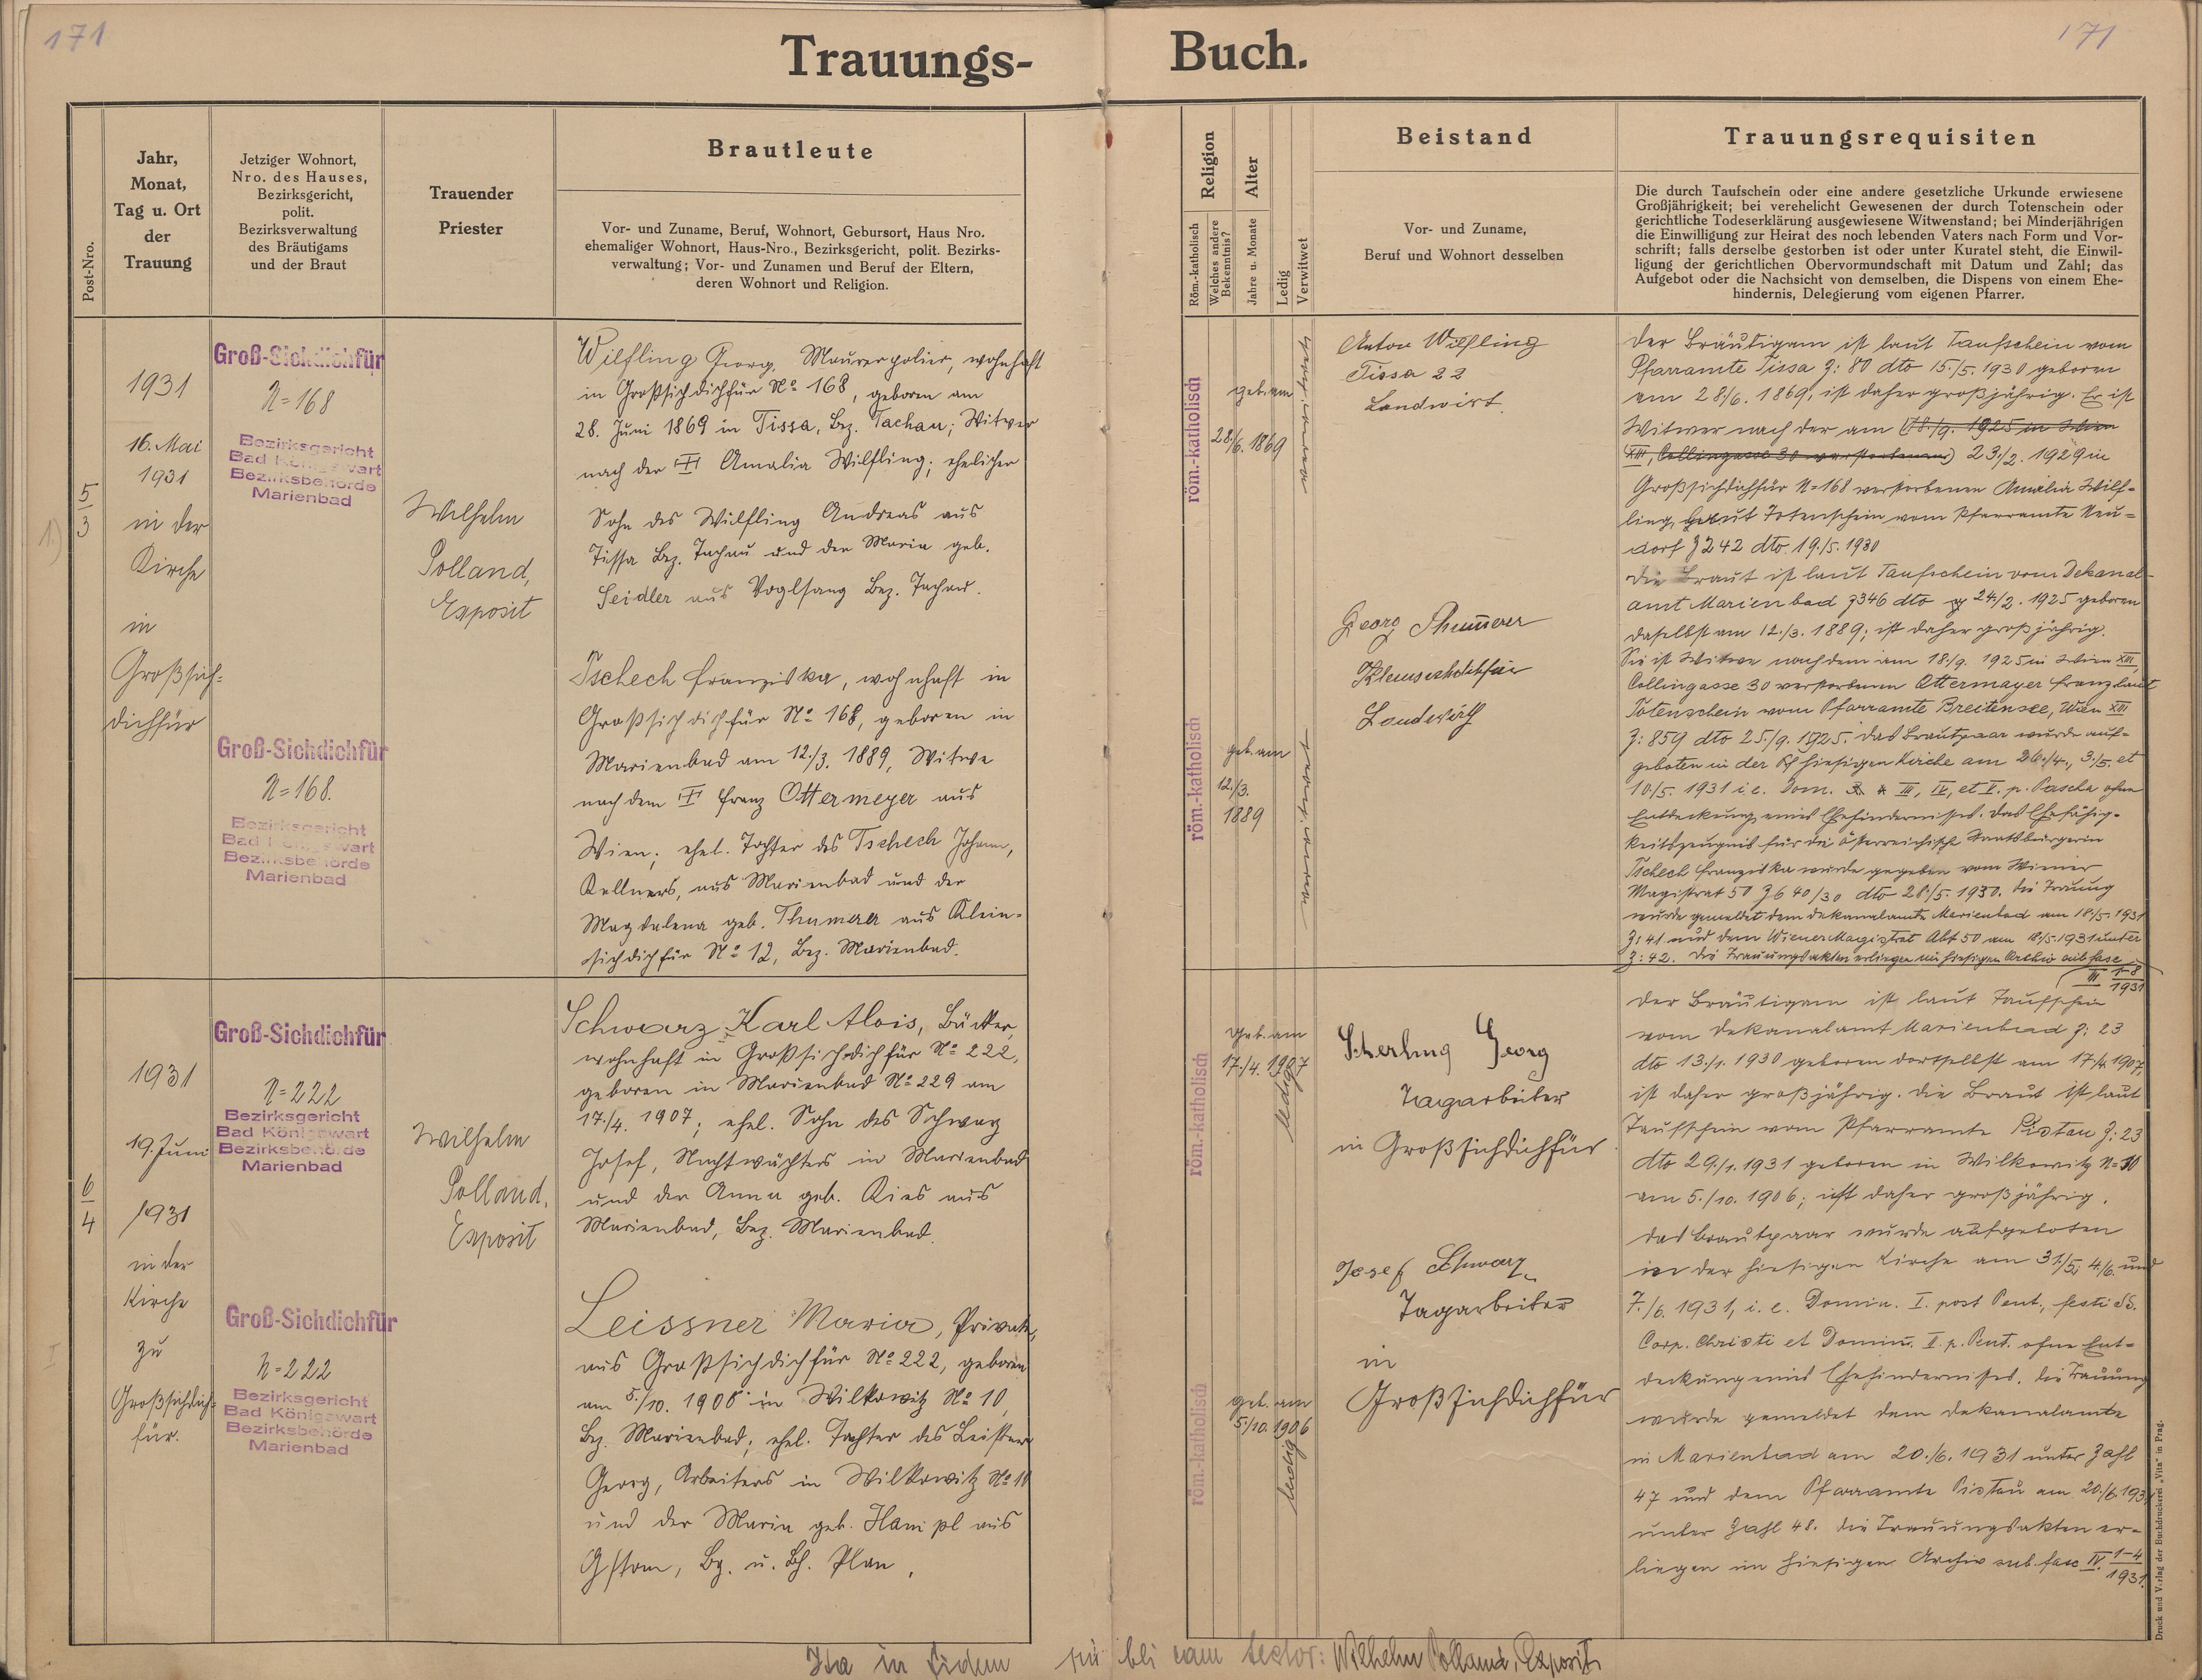 171
171
Trauungs-
Buch.
Post-Nro.
Jahr,
Monat,
Tag u. Ort
der
Trauung
Jetziger Wohnort,
Nro. des Hauses,
Bezirksgericht,
polit.
Bezirksverwaltung
des Bräutigams
und der Braut
Trauender
Priester
Brautleute
Vor- und Zuname, Beruf, Wohnort, Geburtsort, Haus Nro.
ehemaliger Wohnort, Haus-Nro., Bezirksgericht, polit. Bezirks-
verwaltung; Vor- und Zunamen und Beruf der Eltern,
deren Wohnort und Religion.
Religion
Röm.-katholisch
Welches andere
Bekenntnis?
Alter
Jahre u. Monate
Ledig
Verwitwet
Beistand
Vor- und Zuname,
Beruf und Wohnort desselben
Trauungsrequisiten
Die durch Taufschein oder eine andere gesetzliche Urkunde erwiesene
Großjährigkeit; bei verehelicht Gewesenen der durch Totenschein oder
gerichtliche Todeserklärung ausgewiesene Witwenstand; bei Minderjährigen
die Einwilligung zur Heirat des noch lebenden Vaters nach Form und Vor-
schrift; falls derselbe gestorben ist oder unter Kuratel steht, die Einwil-
ligung der gerichtlichen Obervormundschaft mit Datum und Zahl; das
Aufgebot oder die Nachsicht von demselben, die Dispens von einem Ehe-
hindernis, Delegierung vom eigenen Pfarrer.
1.)
5
3
1931
16. Mai
1931
in der
Kirche
in
Großsich-
dichfür
Groß-Sichdichfür
N=168
Bezirksgericht
Bad Königswart
Bezirksbehörde
Marienbad
Groß-Sichdichfür
N=168.
Bezirksgericht
Bad Königswart
Bezirksbehörde
Marienbad
Wilhelm
Polland,
Exposit
Wilfling Georg, Maurerpolier, wohnhaft
in Großsichdichfür No 168, geboren am
28. Juni 1869 in Tissa, Bez. Tachau; Witwer
nach der Amalia Wilfling; ehelicher
Sohn des Wilfling Andreas aus
Tissa Bez. Tachau und der Maria geb.
Seidler aus Voglsang Bez. Tachau.
Tschech Franziska, wohnhaft in
Großsichdichfür No 168, geboren in
Marienbad am 12./3. 1889, Witwe
nach dem Franz Ottermeyer aus
Wien; ehel. Tochter des Tschech Johann,
Kellners, aus Marienbad und der
Magdalena geb. Thumerer aus Klein-
sichdichfür No 12, Bez. Marienbad.
röm.-katholisch
geb. am
28./6. 1869
verwitwet
röm.-katholisch
geb. am
12./3.
1889
verwitwet
Anton Wilfling
Tissa 22
Landwirt.
Georg
Landwirth
Der Bräutigam ist laut Taufschein vom
Pfarramte Tissa Z: 80 dto 15./5. 1930 geboren
am 28/6. 1869, ist daher großjährig. Er ist
Witwer nach der am (18./9. 1925 in Wien
XIII, Collingasse 30 verstorbenen) 23./2. 1929 in
Großsichdichfür N=168 verstorbenen Amalia Wilf-
ling, laut Totenschein vom Pfarramte Neu-
dorf Z 242 dto. 19./5. 1930
Die Braut ist laut Taufschein vom Dekanal-
amt Marienbad Z 346 dto 24./2. 1925 geboren
daselbst am 12./3. 1889; ist daher großjährig.
Sie ist Witwe nach dem am 18./9. 1925 in Wien XIII,
Collingasse 30 verstorbenen Ottermayer Franz laut
Totenschein vom Pfarramte Breitensee, Wien XIII
Z: 859 dto 25./9. 1925. Das Brautpaar wurde auf-
geboten in der hiesigen Kirche am 26./4., 3./5. et
10/5. 1931 i.e. Dom. III, IV, et V. p. Pascha ohne
Entdeckung eines Ehehindernisses. Das Ehefähig-
keitszeugnis für die österreichische Staatsbürgerin
Tschech Franziska wurde gegeben vom Wiener
Magistrat 50 Z 640/30 dto 28./5. 1930. Die Trauung
wurde gemeldet dem Dekanalamte Marienbad am 18./5. 1931
Z: 41 und dem Wiener Magistrat Abt 50 am 18./5. 1931 unter
Z: 42. Die Trauungsakten erliegen im hiesigen Archiv sub fasc
III 1-8
1931
I
6
4
1931
19. Juni
1931
in der
Kirche
zu
Großsichdich-
für.
Groß-Sichdichfür
N=222
Bezirksgericht
Bad Königswart
Bezirksbehörde
Marienbad
Groß-Sichdichfür
N=222
Bezirksgericht
Bad Königswart
Bezirksbehörde
Marienbad
Wilhelm
Polland,
Exposit
Schwarz Karl Alois, Bäcker,
wohnhaft in Großsichdichfür No 222,
geboren in Marienbad No 229 am
17./4. 1907; ehel. Sohn des Schwarz
Josef, Nachtwächters in Marienbad
und der Anna geb. Ries aus
Marienbad, Bez. Marienbad.
Leissner Maria, Private,
aus Großsichdichfür No 222, geboren
am 5./10. 1906 in Wilkowitz No 10,
Bez. Marienbad; ehel. Tochter des Leissner
Georg, Arbeiters in Wilkowitz No 10
und der Maria geb. Hampl aus
Gstom, Bg. u. Bh. Plan.
röm.-katholisch
geb. am
17./4. 1907
ledig
röm.-katholisch
geb. am
5/10. 1906
ledig
Scherling Georg
Tagarbeiter
in Großsichdichfür
Josef Schwarz
Tagarbeiter
in
Großsichdichfür
Der Bräutigam ist laut Taufschein
vom Dekanalamt Marienbad Z: 23
dto 13./1. 1930 geboren dortselbst am 17/4. 1907,
ist daher großjährig. Die Braut ist laut
Taufschein vom Pfarramte Pistau Z: 23
dto 29./1. 1931 geboren in Wilkowitz N=10
am 5./10. 1906; ist daher großjährig.
Das Brautpaar wurde aufgeboten
in der hiesigen Kirche am 31./5., 4./6. und
7./6. 1931, i.e. Domin. I. post Pent., festi SS.
Corp. Christi et Domin. II. p. Pent. ohne Ent-
deckung eines Ehehindernisses. Die Trauung
wurde gemeldet dem Dekanalamte
in Marienbad am 20./6. 1931 unter Zahl
47 und dem Pfarramte Pistau am 20./6. 1931
unter Zahl 48. Die Trauungsakten er-
liegen im hiesigen Archiv sub. fasc IV. 1-4
1931.
Ita in fidem Wilhelm Polland, Exposit
Druck und Verlag der Buchdruckerei „Vita" in Prag.